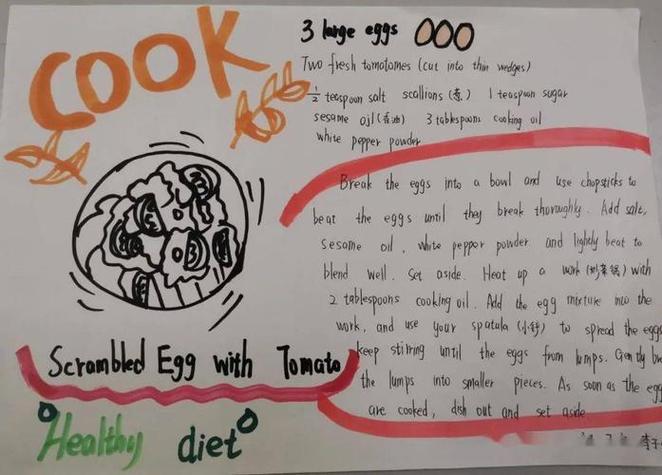 COOK
3 large eggs
Two fresh tomatomes (cut into thin wedges)
1/2 teaspoon salt scallions (葱) 1 teaspoon sugar
sesame oil (香油) 3 tablespoons cooking oil
white pepper powder
Break the eggs into a bowl and use chopsticks to
beat the eggs until they break thoroughly. Add salt,
sesame oil, white pepper powder and lightly beat to
blend well. Set aside. Heat up a work (炒菜锅) with
2 tablespoons cooking oil. Add the egg mixture into the
work, and use your spatula to spread the eggs
keep stirring until the eggs from lumps. Gently
the lumps into smaller pieces. As soon as the
are cooked, dish out and set aside
Scrambled Egg with Tomato
Healthy diet